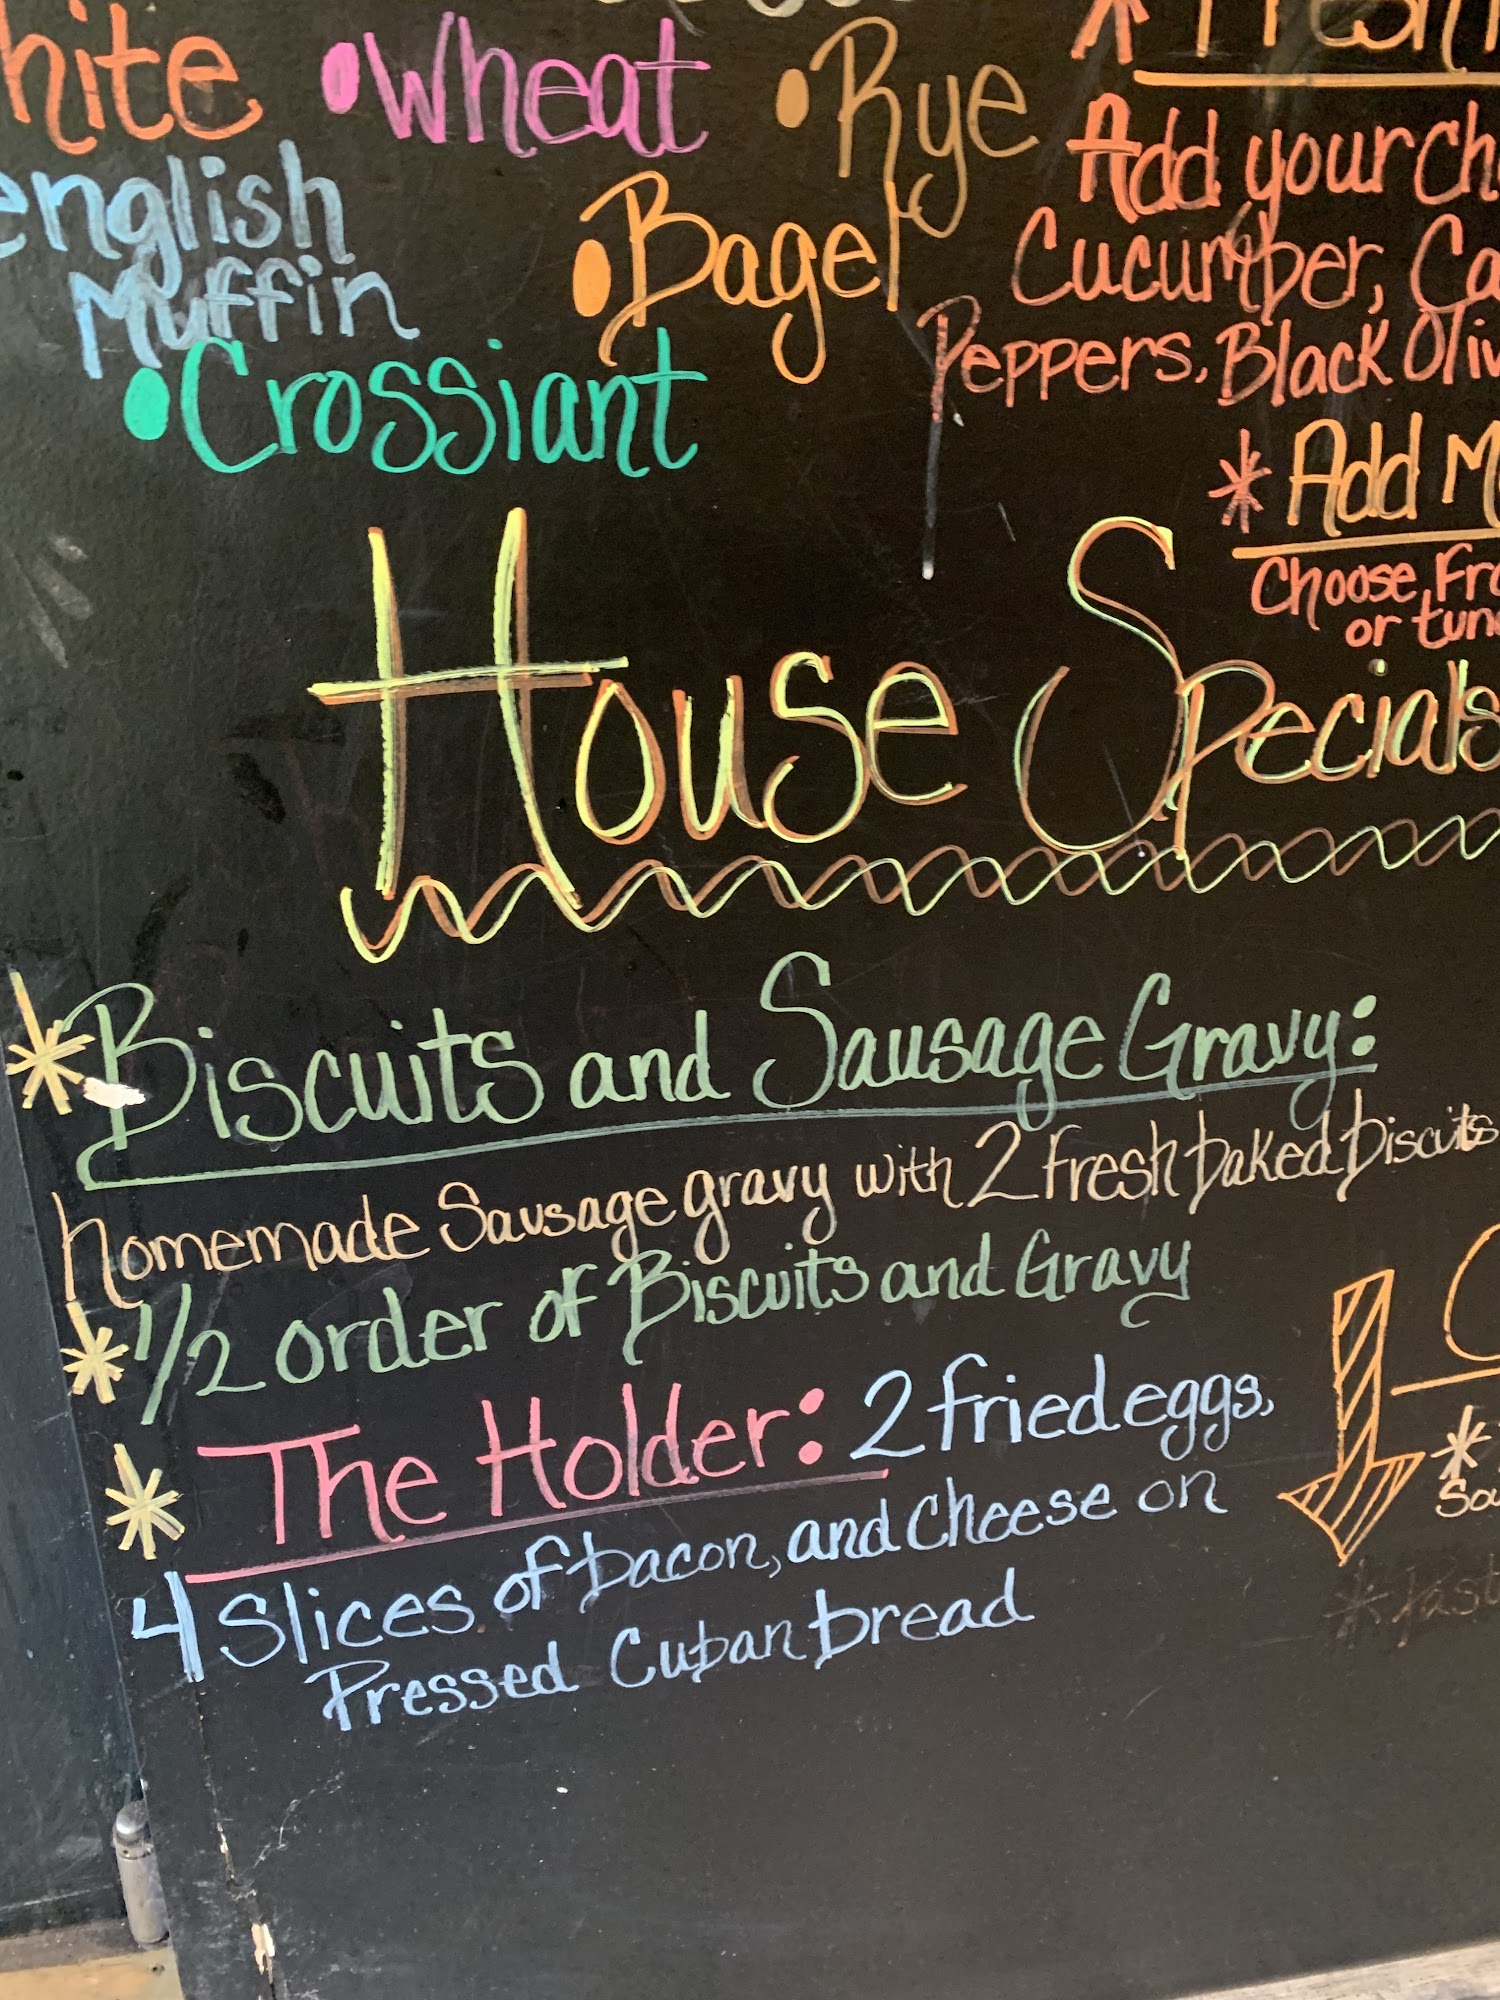 •Wheat •Rye
english
Muffin
•Bagel
•Crossiant
Add your
Cucumber,
Peppers, Black
* Add
Choose
or
House Specials
*Biscuits and Sausage Gravy:
homemade Sausage gravy with 2 fresh baked biscuits
* 1/2 order of Biscuits and Gravy
* The Holder: 2 fried eggs,
4 Slices of bacon, and Cheese on
Pressed Cuban bread